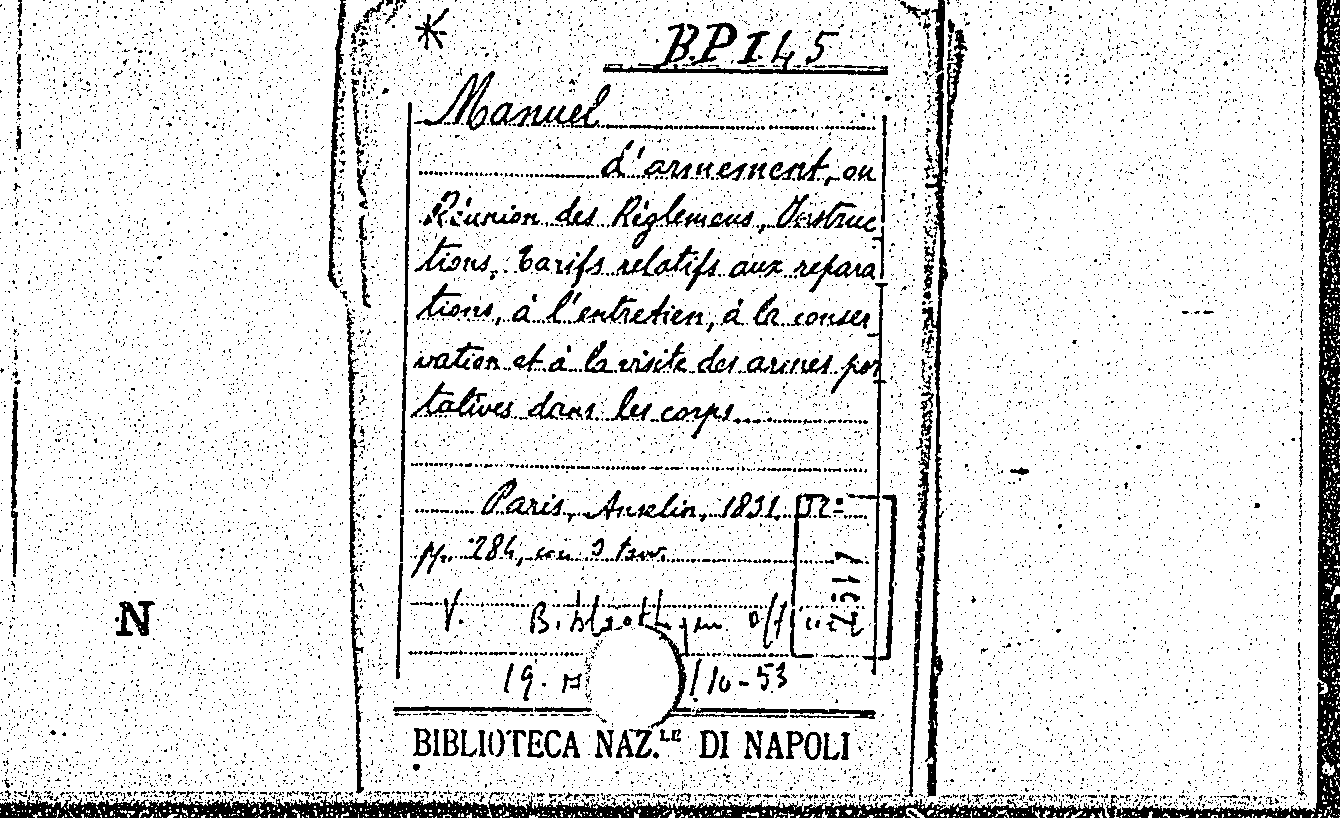 B.P.I.45
Manuel
d'armement, ou
Réunion des Réglemens, Instruc
tions, tarifs relatifs aux repara
tions, à l'entretien, à la conser
vation et à la visite des armes por
tatives dans les corps...
Paris, Anselin, 1831.
284, 3 tav.
V. Bibliothèque
19. 10-53
N
BIBLIOTECA NAZ.LE DI NAPOLI